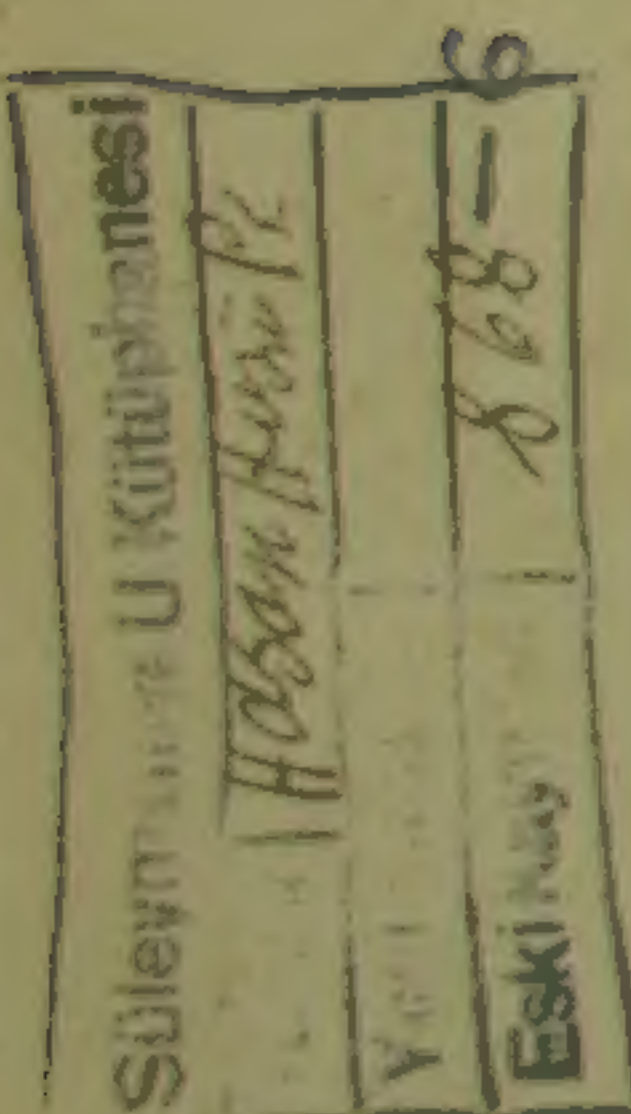 Süleymaniye U Kütüphanesi
Hasan Hüsnü Pş
Y
Eski Kayıt 898-6